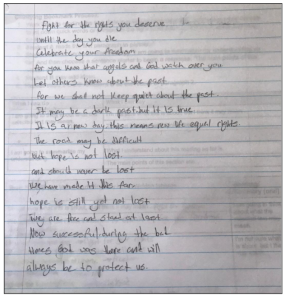 Fight for the rights you deserve
Until the day you die
Celebrate your freedom
for you know that angels and God watch over you
Let others know about the past
For we shall not keep quiet about the past.
It may be a dark past but it is true
It is a new day this means new life equal rights.
The road may be difficult
but hope is not lost
and should never be lost
We have made it this far
hope is still yet not lost
We are free and at last
Now successful, during the
times God was there and will
always be to protect us.